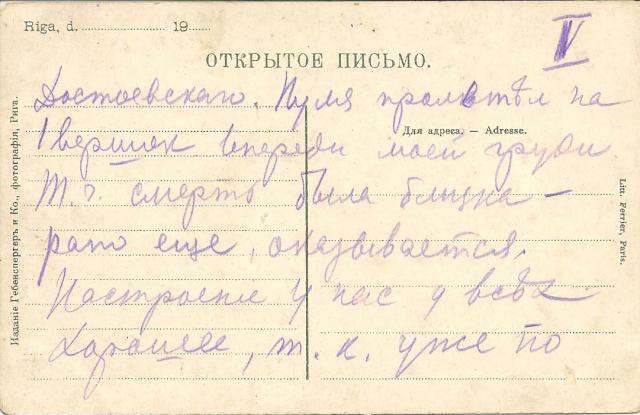 Riga, d. 19
V
ОТКРЫТОЕ ПИСЬМО.
Для адреса. — Adresse.
Достоевскаго. Пуля пролетѣл на
1 вершок впереди моей груди
т. ч. смерть была близка —
рано еще, оказывается.
Настроение у нас у всѣх
хорошее, т. к. уже по
Изданіе Гебенспергеръ и Ко., фотографія, Рига.
Litt. Ferrier, Paris.